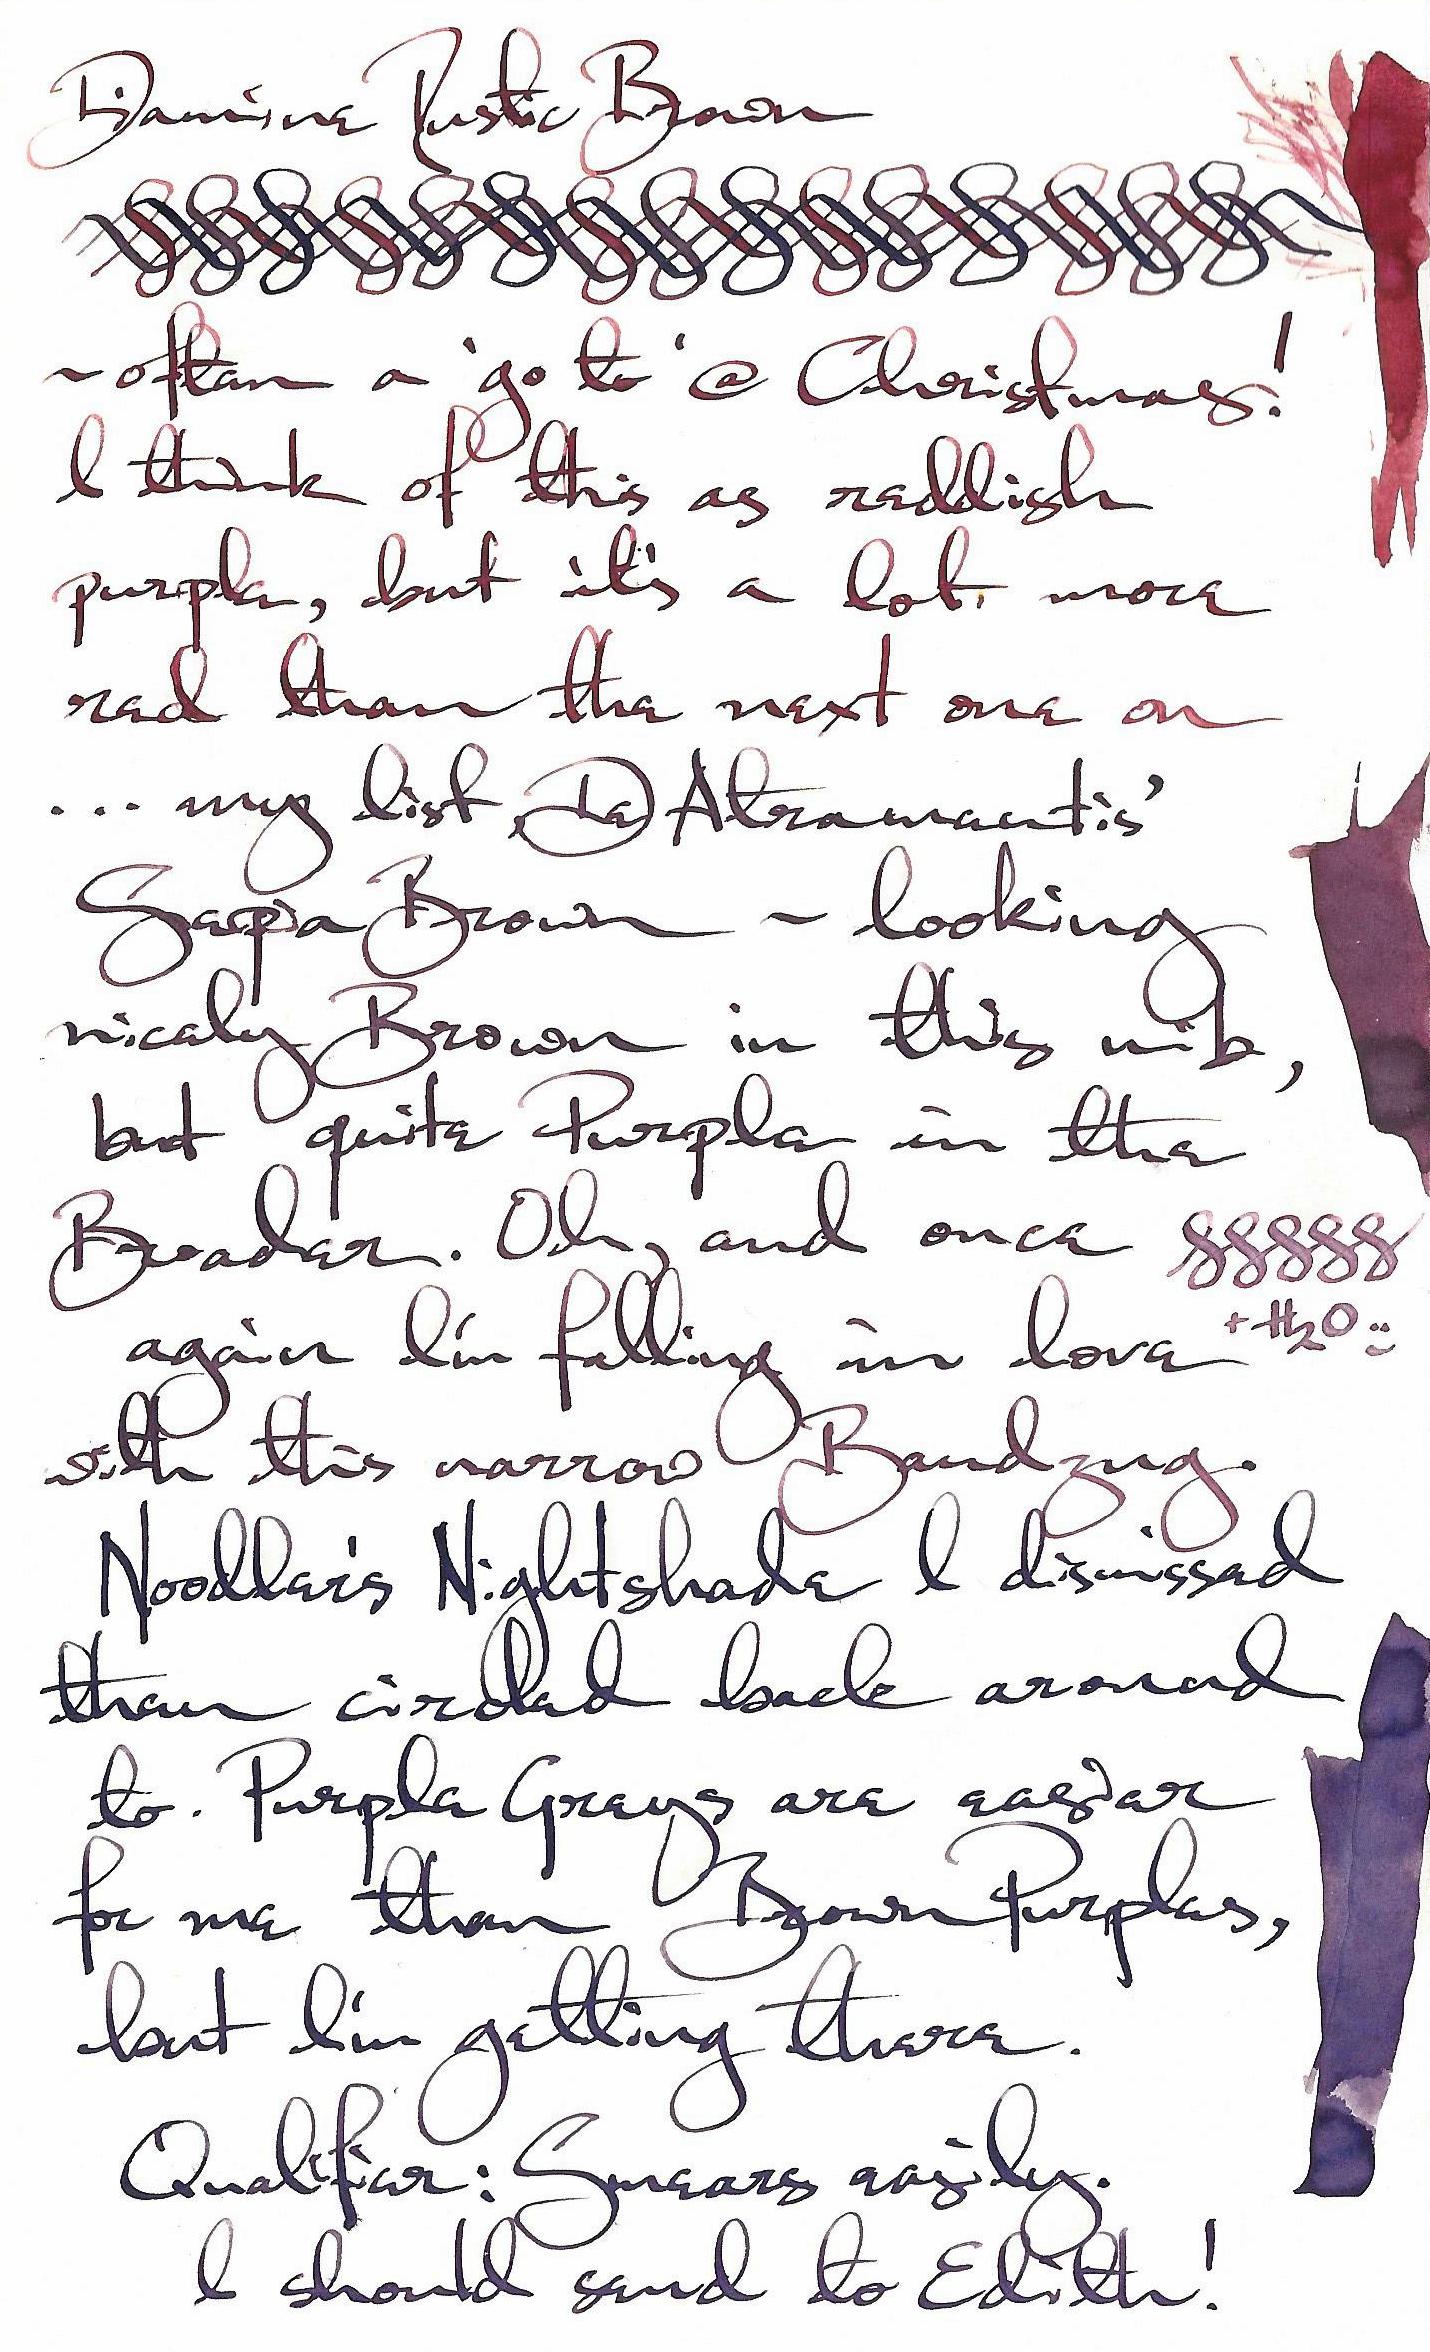 Diamine Rustic Brown
~often a 'go to' @ Christmas!
I think of this as reddish
purple, but it's a lot more
red than the next one on
... my list, De Atramentis'
Saepia Brown ~ looking
nicely Brown in this nib,
but quite Purple in the
Broader. Oh, and once
+ H2O :)
again I'm falling in love
with this narrow Bandzug.
Noodler's Nightshade I dismissed
then circled back around
to. Purple Greys are easier
for me than Brown Purples,
but I'm getting there.
Qualifier: Smears easily.
I should send to Edith!